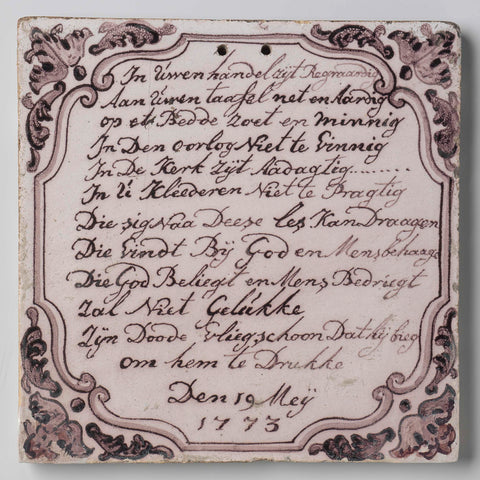 In Uwen handel zÿt Regtvaardig
Aan Uwen taafel net en Aardig
op et Bedde Zoet en minnig
In Den oorlog Niet te Vinnig
In De Kerk Zÿt Aadagtig..........
In U Kleederen Niet te Pragtig
Die sig Naa Deese les Kan Draagen
Die Vindt Bÿ God en Mens behaage
Die God Beliegt en Mens Bedriegt
Zal Niet Gelukke
Zÿn Doode Vlieg schoon Dat hÿ bieg
om hem te Drukke
Den 19 Meÿ
1773